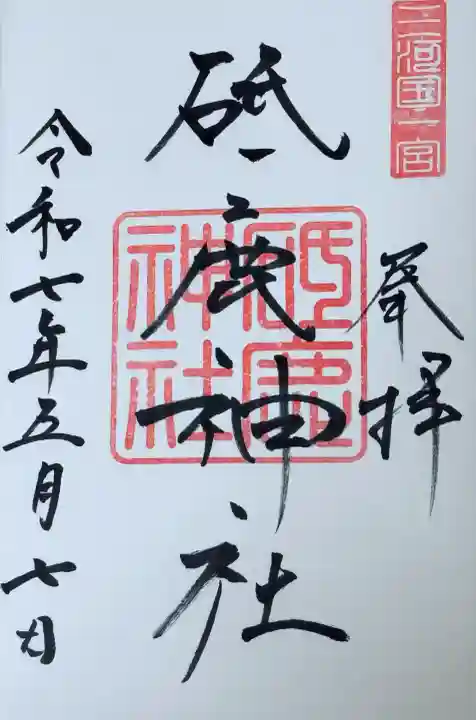 三河國一宮
奉拝
砥鹿神社
砥鹿神社
令和七年五月七日